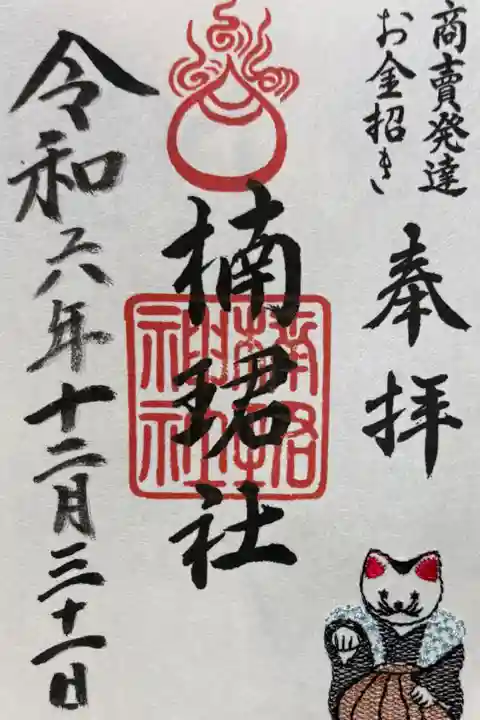 商賣発達
お金招き
奉拝
楠珺社
楠珺
神社
令和六年十二月三十一日